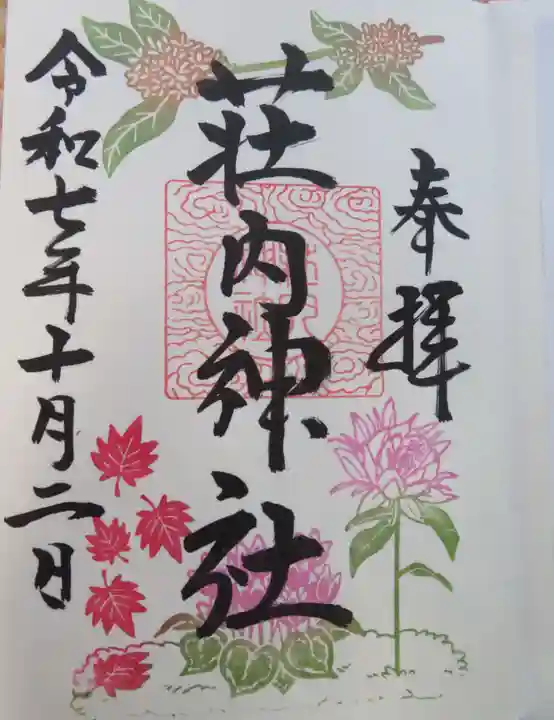 奉拝
荘内神社
令和七年十月二日